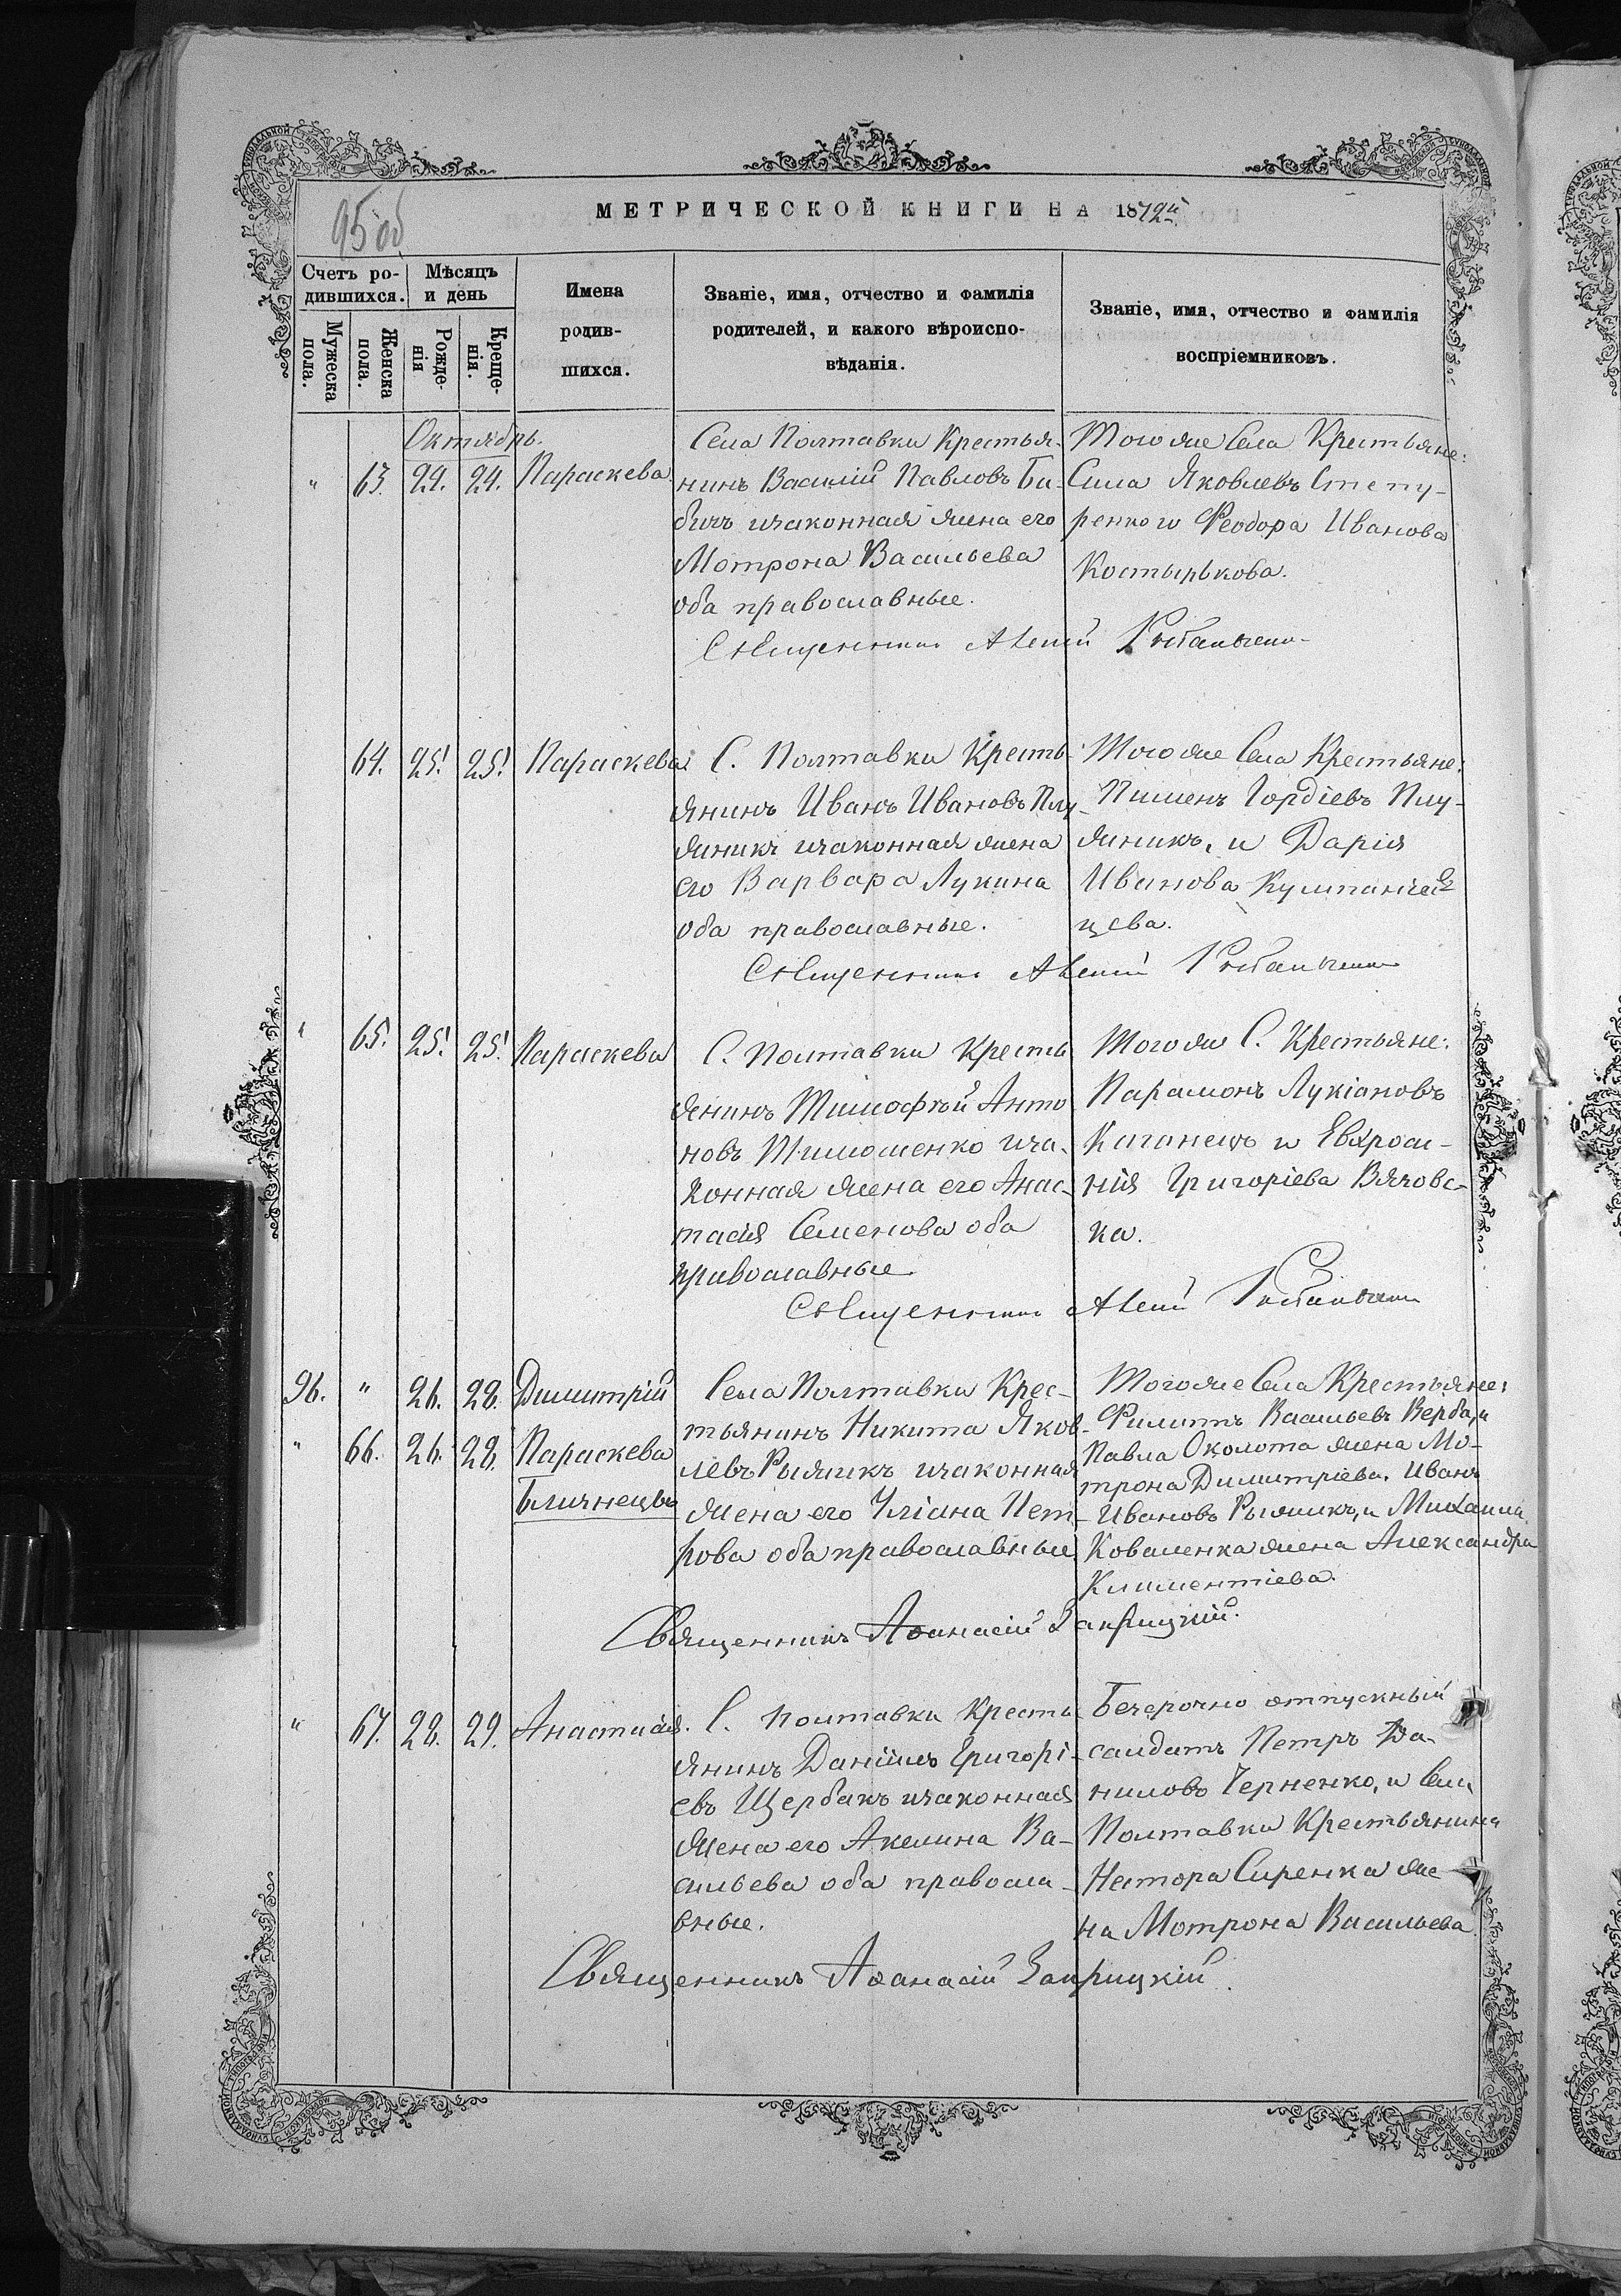 95 об
МЕТРИЧЕСКОЙ КНИГИ НА 1872й
Счетъ ро-
дившихся.
Мѣсяцъ
и день
Мужеска
пола.
Женска
пола.
Рожде-
нія
Креще-
нія.
Имена
родив-
шихся.
Званіе, имя, отчество и фамилія
родителей, и какого вѣроиспо-
вѣданія.
Званіе, имя, отчество и фамилія
воспріемниковъ.
Октябрь.
" 63. 24. 24. Параскева
Села Полтавки Крестья-
нинъ Василій Павловъ Би-
бичъ изаконная жена его
Мотрона Васильева
оба православные.
Того же Села Крестьяне:
Сила Яковлевъ Степу-
ренко и Феодора Иванова
Костырькова.
Священникъ
64. 25. 25. Параскева
С. Полтавки Кресть-
янинъ Иванъ Ивановъ Плу-
жникъ изаконная жена
его Варвара Лукина
оба православные.
Того же Села Крестьяне:
Пименъ Гордіевъ Плу-
жникъ, и Дарія
Иванова
цева.
Священникъ
" 65. 25. 25. Параскева
С. Полтавки Кресть
янинъ Тимофѣй Анто
новъ Тимошенко иза-
конная жена его Анас-
тасія Семенова оба
православные
Того же С. Крестьяне:
Парамонъ Лукіановъ
Каганецъ и Евфроси-
нія Григоріева Вязовс-
ка.
Священникъ
36. " 26. 28. Димитрій
" 66. 26. 28. Параскева
Близнецы
Села Полтавки Крес-
тьянинъ Никита Яков-
левъ Рыжикъ изаконная
жена его Уліана Пет-
рова оба православные
Того же Села Крестьяне:
Филиппъ Васильевъ Верба, и
Павла Околота жена Мо-
трона Димитріева. Иванъ
Ивановъ Рыжикъ, и Михаила
Коваленка жена Александра
Климентіева.
Священникъ Аѳанасій Закрицкій.
" 67. 28. 29. Анастасія.
С. Полтавки Кресть
янинъ Даніилъ Григорі-
евъ Щербакъ изаконная
жена его Акелина Ва-
сильева оба правосла-
вные.
Безсрочно отпускный
салдатъ Петръ Да-
ниловъ Черненко, и Села
Полтавки Крестьянина
Нестора Сиренка же-
на Мотрона Васильева
Священникъ Аѳанасій Закрицкій.